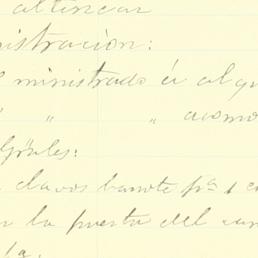 altincar
nistración:
ministrado á alqu
" " " acomo
Gráles:
clavos banote pª 1 c
la puerta del can